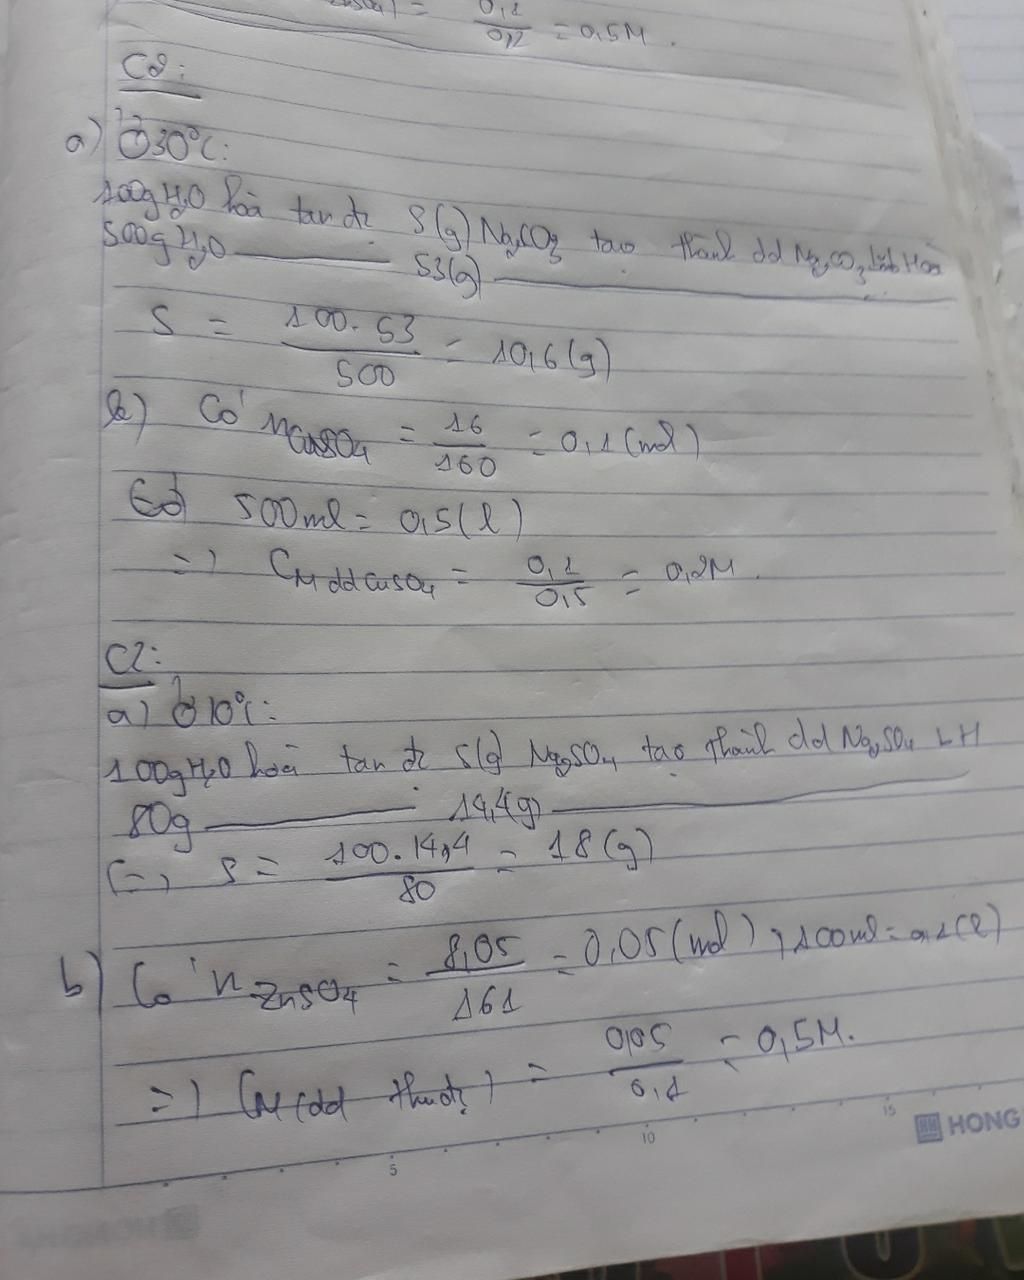 = 0,1/0,2 = 0,5M.
C8:
a) Ở 30°C:
100g H₂O hoà tan đc S(g) Na₂CO₃ tạo thành dd Na₂CO₃ bão hoà
500g H₂O ——— 53(g) ———
S = 100.53/500 = 10,6(g)
b) Có nCuSO₄ = 16/160 = 0,1(mol)
Có 500ml = 0,5(l)
=) CM dd CuSO₄ = 0,1/0,5 = 0,2M.
C7:
a) Ở 10°C:
100g H₂O hoà tan đc S(g) Na₂SO₄ tạo thành dd Na₂SO₄ BH
80g ——— 14,4(g) ———
(=) S = 100.14,4/80 = 18(g)
b) Có nZnSO₄ = 8,05/161 = 0,05(mol), 100ml = 0,1(l)
=) CM(dd thu đc) = 0,05/0,1 = 0,5M.
5 10 15
HONG